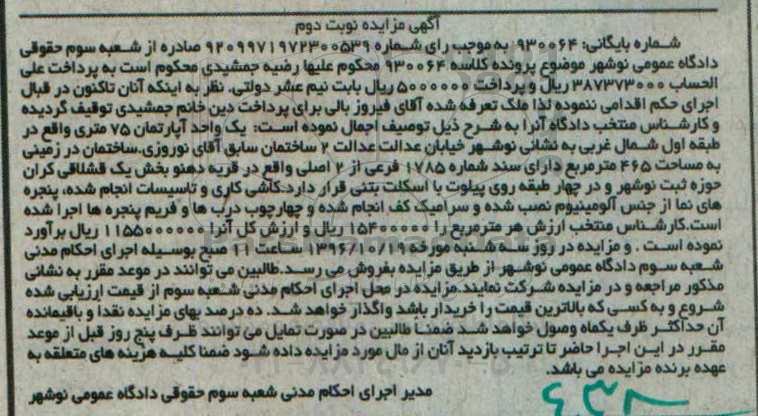 آگهی مزایده نوبت دوم
شماره بایگانی: ۹۳۰۰۶۴ به موجب رای شماره ۹۲۰۹۹۷۱۹۷۲۳۰۰۵۳۹ صادره از شعبه سوم حقوقی
دادگاه عمومی نوشهر موضوع پرونده کلاسه ۹۳۰۰۶۴ محکوم علیها رضیه جمشیدی محکوم است به پرداخت علی
الحساب ۳۸۷۳۷۳۰۰۰ ریال و پرداخت ۵۰۰۰۰۰۰ ریال بابت نیم عشر دولتی. نظر به اینکه آنان تاکنون در قبال
اجرای حکم اقدامی ننموده لذا ملک تعرفه شده آقای فیروز بالی برای پرداخت دین خانم جمشیدی توقیف گردیده
و کارشناس منتخب دادگاه آنرا به شرح ذیل توصیف اجمال نموده است: یک واحد آپارتمان ۷۵ متری واقع در
طبقه اول شمال غربی به نشانی نوشهر خیابان عدالت عدالت ۲ ساختمان سابق آقای نوروزی.ساختمان در زمینی
به مساحت ۴۶۵ مترمربع دارای سند شماره ۱۷۸۵ فرعی از ۲ اصلی واقع در قریه دهنو بخش یک قشلاقی کران
حوزه ثبت نوشهر و در چهار طبقه روی پیلوت با اسکلت بتنی قرار دارد.کاشی کاری و تاسیسات انجام شده، پنجره
های نما از جنس آلومینیوم نصب شده و سرامیک کف انجام شده و چهارچوب درب ها و فریم پنجره ها اجرا شده
است.کارشناس منتخب ارزش هر مترمربع را ۱۵۴۰۰۰۰۰ ریال و ارزش کل آنرا ۱۱۵۵۰۰۰۰۰۰ ریال برآورد
نموده است . و مزایده در روز سه شنبه مورخه ۱۳۹۶/۱۰/۱۹ ساعت ۱۱ صبح بوسیله اجرای احکام مدنی
شعبه سوم دادگاه عمومی نوشهر از طریق مزایده بفروش می رسد.طالبین می توانند در موعد مقرر به نشانی
مذکور مراجعه و در مزایده شرکت نمایند.مزایده در محل اجرای احکام مدنی شعبه سوم از قیمت ارزیابی شده
شروع و به کسی که بالاترین قیمت را خریدار باشد واگذار خواهد شد. ده درصد بهای مزایده نقدا و باقیمانده
آن حداکثر ظرف یکماه وصول خواهد شد ضمنا طالبین در صورت تمایل می توانند ظرف پنج روز قبل از موعد
مقرر در این اجرا حاضر تا ترتیب بازدید آنان از مال مورد مزایده داده شود ضمنا کلیه هزینه های متعلقه به
عهده برنده مزایده می باشد.
مدیر اجرای احکام مدنی شعبه سوم حقوقی دادگاه عمومی نوشهر